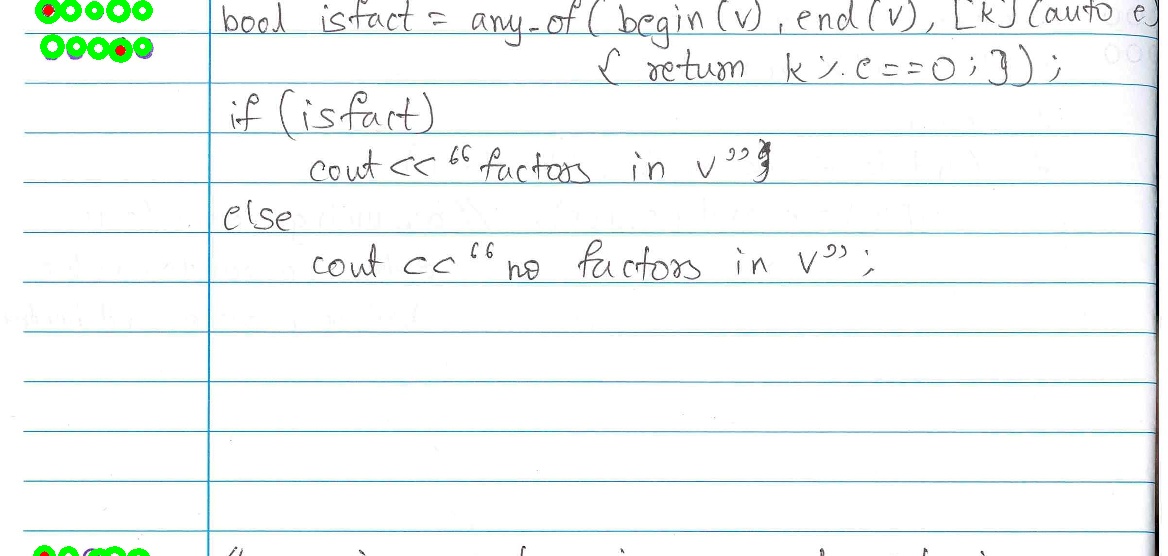 bool isfact = any_of(begin(v), end(v), [k](auto e)
{ return k%e==0;});
if (isfact)
cout << "factors in v";
else
cout << "no factors in v";